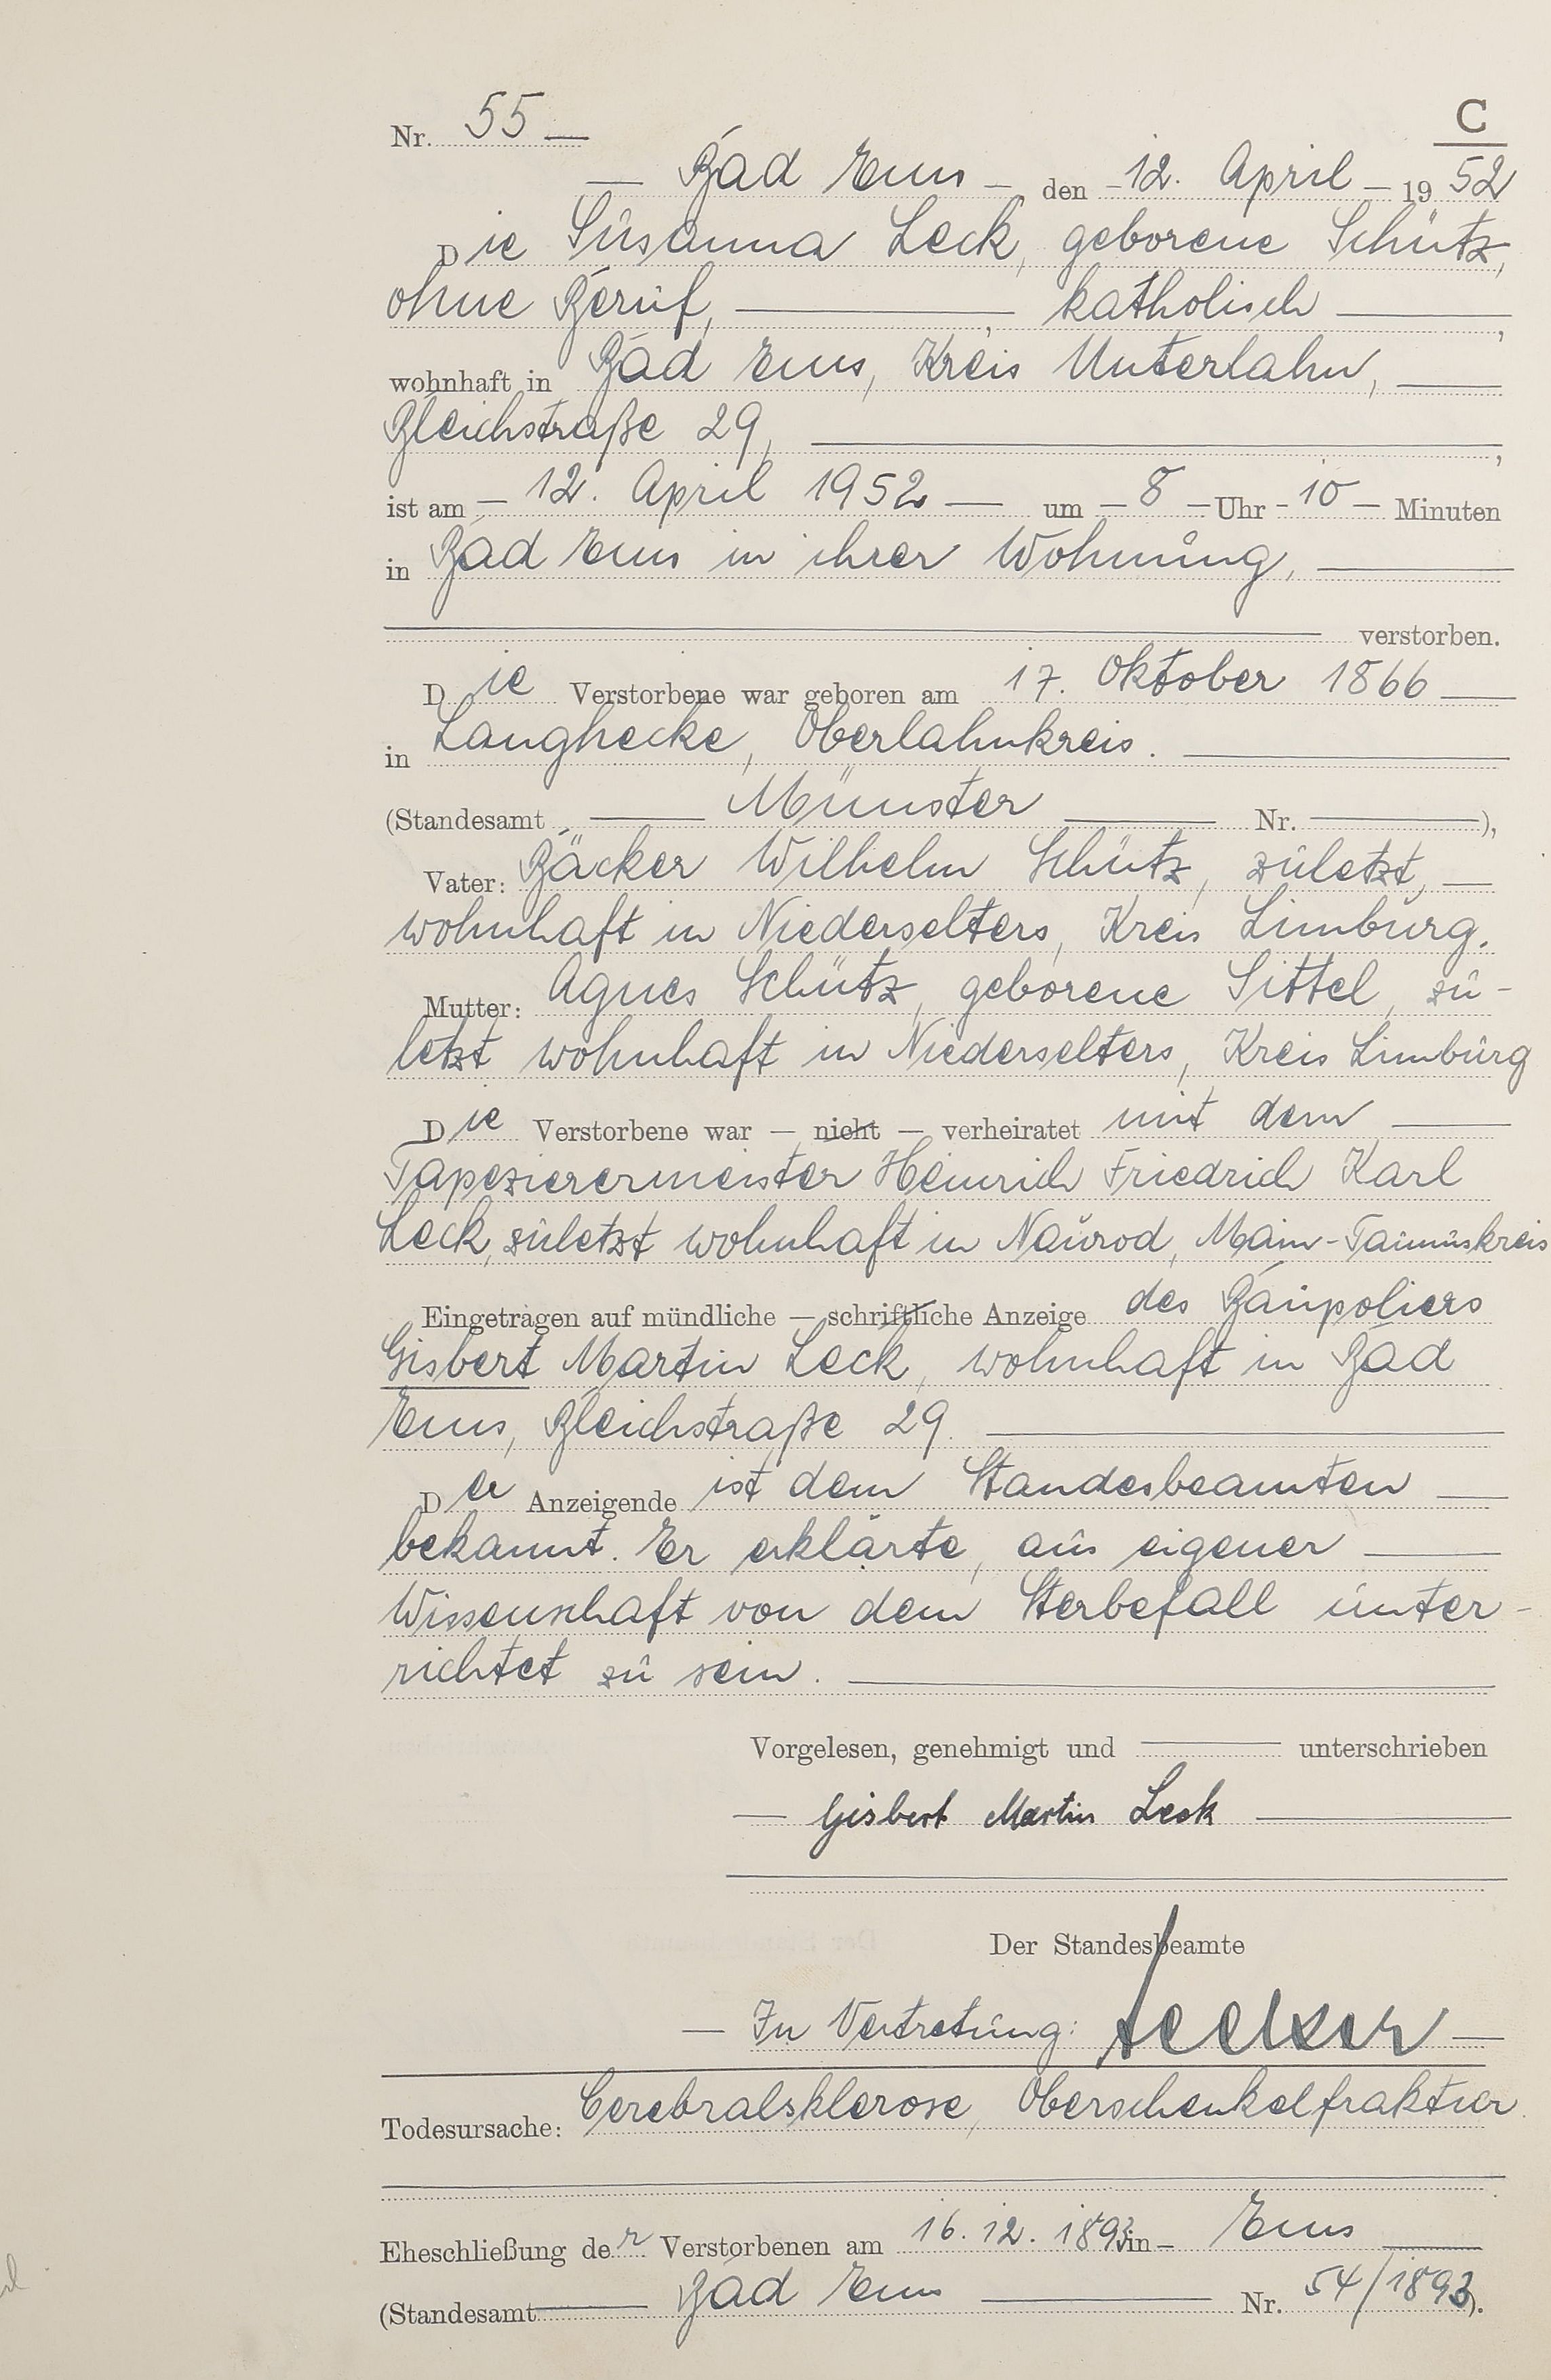 C
Nr. 55 —
— Bad Ems — den – 12. April – 19 52
Die Susanna Leck, geborene Schütz,
ohne Beruf, ———, katholisch ———,
wohnhaft in Bad Ems, Kreis Unterlahn, ——
Bleichstraße 29, ———,
ist am – 12. April 1952 — um – 8 – Uhr - 10 – Minuten
in Bad Ems in ihrer Wohnung, ———
——— verstorben.
Die Verstorbene war geboren am 17. Oktober 1866 ——
in Langhecke, Oberlahnkreis. ———
(Standesamt ——— Münster ——— Nr. ———),
Vater: Bäcker Wilhelm Schütz, zuletzt, —
wohnhaft in Niederselters, Kreis Limburg.
Mutter: Agnes Schütz, geborene Sittel, zu-
letzt wohnhaft in Niederselters, Kreis Limburg
Die Verstorbene war — nicht — verheiratet mit dem ——
Tapezierermeister Heinrich Friedrich Karl
Leck, zuletzt wohnhaft in Naurod, Main-Taunuskreis
Eingetragen auf mündliche — schriftliche Anzeige des Baupoliers
Gisbert Martin Leck, wohnhaft in Bad
Ems, Bleichstraße 29. ———
Der Anzeigende ist dem Standesbeamten ——
bekannt. Er erklärte, aus eigener ———
Wissenschaft von dem Sterbefall unter-
richtet zu sein. ———
Vorgelesen, genehmigt und ——— unterschrieben
— Gisbert Martin Leck ———
Der Standesbeamte
— In Vertretung: —
Todesursache: Cerebralsklerose, Oberschenkelfraktur.
Eheschließung der Verstorbenen am 16. 12. 1893 in – Ems ——
(Standesamt ——— Bad Ems ——— Nr. 54/1893).